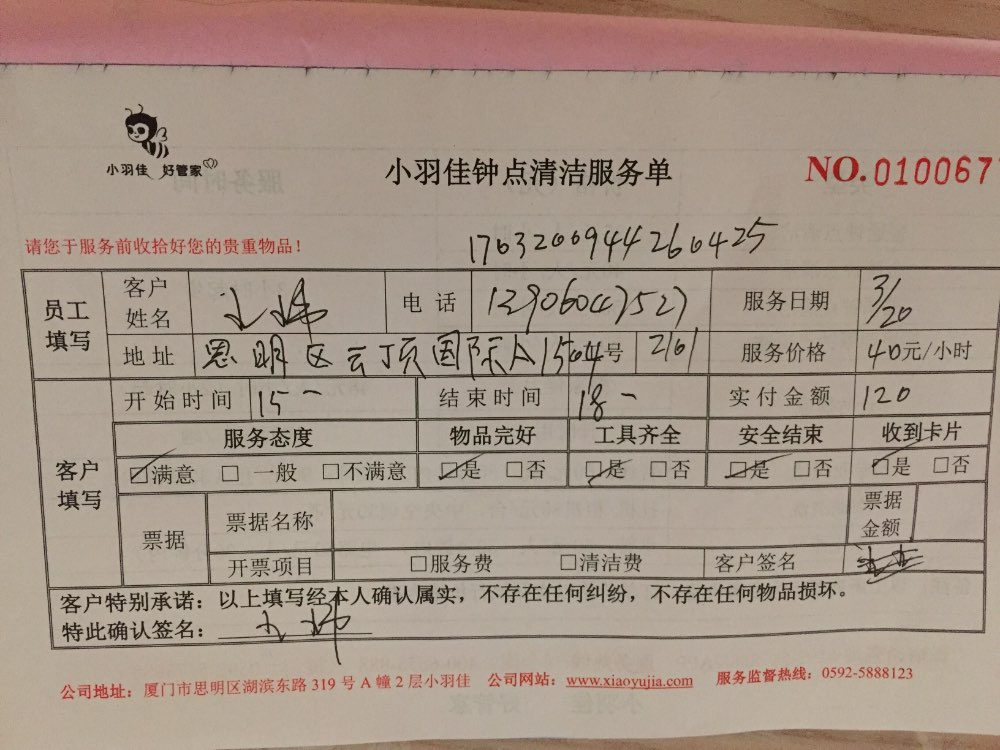 小羽佳 好管家
小羽佳钟点清洁服务单
NO.010067
请您于服务前收拾好您的贵重物品！
1703200944260425
员工填写 客户姓名 电话 服务日期 3/20
地址 思明区云顶国际A1504号 2161 服务价格 40元/小时
客户填写 开始时间 15 - 结束时间 18 - 实付金额 120
服务态度 物品完好 工具齐全 安全结束 收到卡片
☑满意 □一般 □不满意 ☑是 □否 ☑是 □否 ☑是 □否 ☑是 □否
票据 票据名称 票据金额
开票项目 □服务费 □清洁费 客户签名
客户特别承诺：以上填写经本人确认属实，不存在任何纠纷，不存在任何物品损坏。
特此确认签名：
公司地址：厦门市思明区湖滨东路 319 号 A 幢 2 层小羽佳 公司网站：www.xiaoyujia.com 服务监督热线：0592-5888123